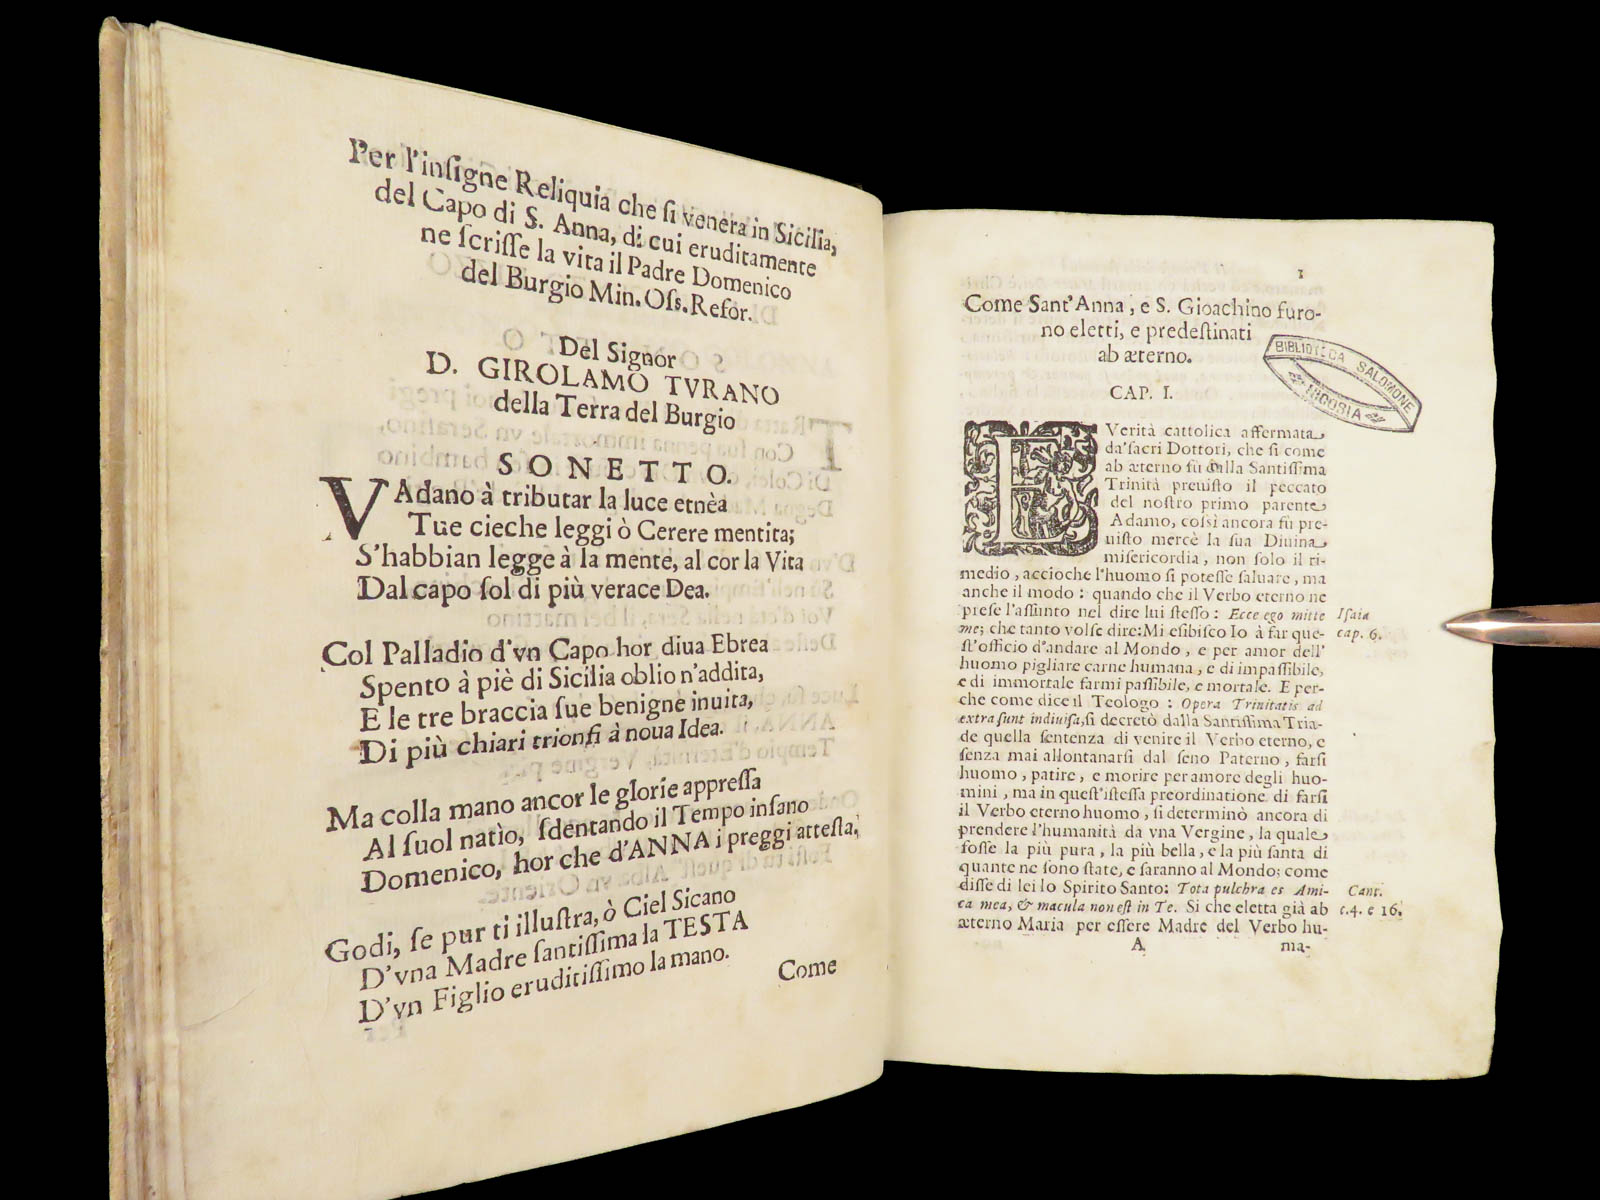 Per l'inſigne Reliquia che ſi venera in Sicilia,
del Capo di S. Anna, di cui eruditamente
ne ſcriſſe la vita il Padre Domenico
del Burgio Min. Oſs. Refor.
Del Signor
D. GIROLAMO TVRANO
della Terra del Burgio
SONETTO.
VAdano à tributar la luce etnèa
Tue cieche leggi ò Cerere mentita;
S'habbian legge à la mente, al cor la Vita
Dal capo ſol di più verace Dea.
Col Palladio d'vn Capo hor diua Ebrea
Spento à piè di Sicilia oblio n'addita,
E le tre braccia ſue benigne inuita,
Di più chiari trionfi à noua Idea.
Ma colla mano ancor le glorie appreſſa
Al ſuol natìo, ſdentando il Tempo inſano
Domenico, hor che d'ANNA i preggi atteſta,
Godi, ſe pur ti illuſtra, ò Ciel Sicano
D'vna Madre ſantiſſima la TESTA
D'vn Figlio eruditiſſimo la mano.
Come
1
Come Sant'Anna, e S. Gioachino furo-
no eletti, e predeſtinati
ab æterno.
BIBLIOTECA SALOMONE
MIGORIA
CAP. I.
E Verità cattolica affermata
da'ſacri Dottori, che ſi come
ab æterno fù dalla Santiſſima
Trinità preuiſto il peccato
del noſtro primo parente
Adamo, coſsì ancora fù pre-
uiſto mercè la ſua Diuina
miſericordia, non ſolo il ri-
medio, accioche l'huomo ſi poteſſe ſaluare, ma
anche il modo: quando che il Verbo eterno ne
preſe l'aſſunto nel dire lui ſteſſo: Ecce ego mitte
me; che tanto volſe dire: Mi eſibiſco Io à far que-
ſt'officio d'andare al Mondo, e per amor dell'
huomo pigliare carne humana, e di impaſſibile,
e di immortale farmi paſſibile, e mortale. E per-
che come dice il Teologo: Opera Trinitatis ad
extra sunt indiuiſa, ſi decretò dalla Santiſſima Tria-
de quella ſentenza di venire il Verbo eterno, e
ſenza mai allontanarſi dal ſeno Paterno, farſi
huomo, patire, e morire per amore degli huo-
mini, ma in queſt'iſteſſa preordinatione di farſi
il Verbo eterno huomo, ſi determinò ancora di
prendere l'humanità da vna Vergine, la quale
foſſe la più pura, la più bella, e la più ſanta di
quante ne ſono ſtate, e ſaranno al Mondo; come
diſſe di lei lo Spirito Santo: Tota pulchra es Ami-
ca mea, & macula non eſt in Te. Si che eletta già ab
æterno Maria per eſſere Madre del Verbo hu-
A
ma-
Iſaia
cap. 6.
Cant.
c.4. e 16.